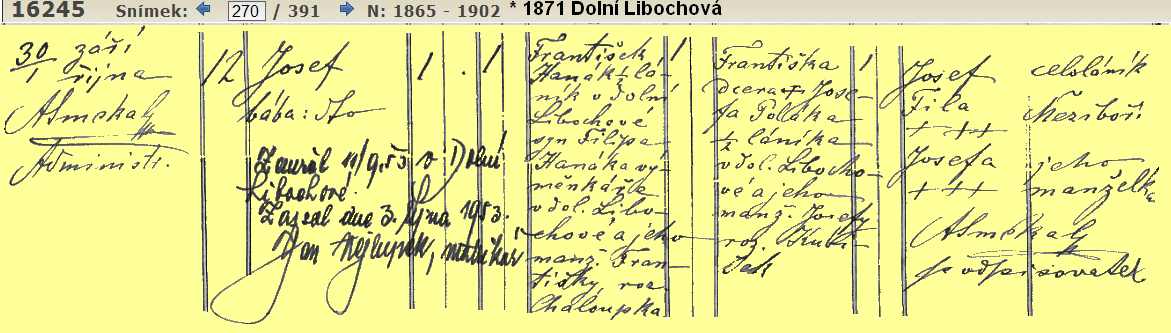 16245 Snímek: 270 / 391 N: 1865 - 1902 * 1871 Dolní Libochová
30 září
1 října
Administr.
12
Josef
bába: Ato
Zemřel 11/9.53 v Dolní
Libochové.
Zapsal dne 3. října 1953.
Jan matrikář
1 . 1
František 1
Hanák ½ lá-
ník v dolní
Libochové
syn Filipa
Hanáka vý-
měnkáře
v dol. Libo-
chové a jeho
manž. Fran-
tišky, roz.
Chaloupka
Františka 1
dcera + Jose-
fa Polláka
½ láníka
v dol. Libocho-
vé a jeho
manž. Josefy
roz. Kubí-
ček
Josef celoláník
Fila Meziboří
+ ++
Josefa jeho
+++ manželka
podpisovatel